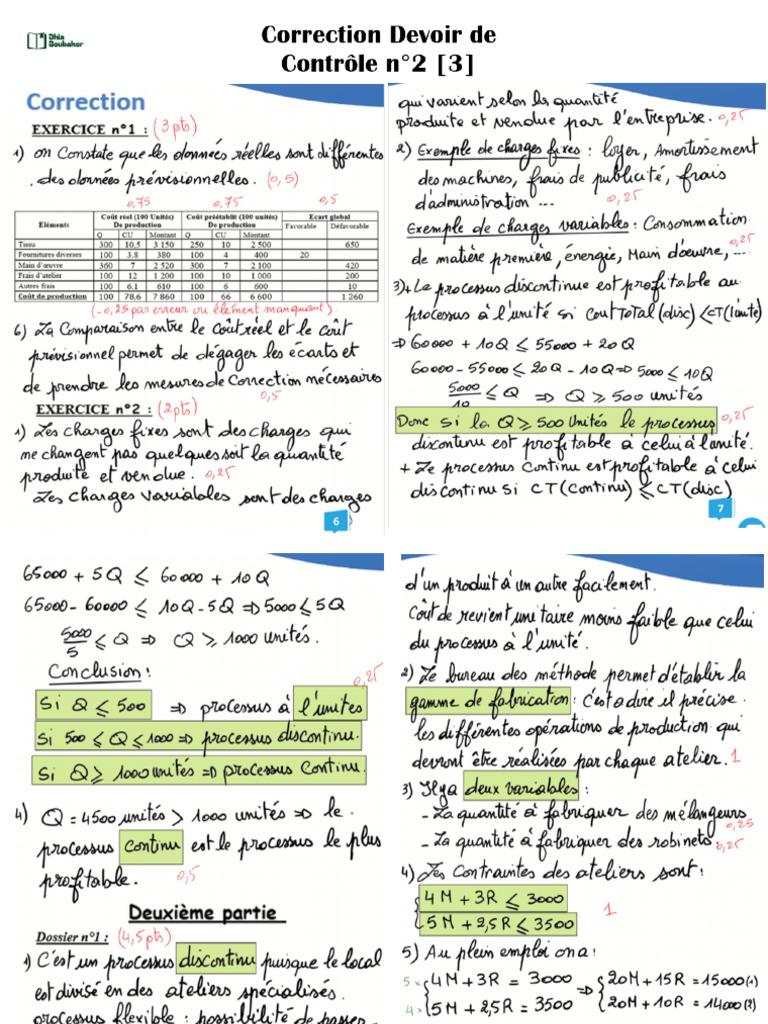 Dhia Boukaker
Correction Devoir de
Contrôle n°2 [3]
Correction
EXERCICE n°1 : (3 pts)
1) on Constate que les données réelles sont différentes
des données prévisionnelles. (0,5)
0,75 0,75 0,5
Eléments Coût réel (100 Unités) De production Coût préétablit (100 unités) De production Ecart global
Q CU Montant Q CU Montant Favorable Défavorable
Tissu 300 10,5 3 150 250 10 2 500 650
Fournitures diverses 100 3.8 380 100 4 400 20
Main d'œuvre 360 7 2 520 300 7 2 100 420
Frais d'atelier 100 12 1 200 100 10 1 000 200
Autres frais 100 6.1 610 100 6 600 10
Coût de production 100 78,6 7 860 100 66 6 600 1 260
(-0,25 par erreur ou élément manquant)
6) La Comparaison entre le coût réel et le coût
prévisionnel permet de dégager les écarts et
de prendre les mesures de Correction nécessaires
0,5
EXERCICE n°2 : (2pts)
1) Les charges fixes sont des charges qui
ne changent pas quelques soit la quantité
produite et vendue. 0,25
Les charges variables sont des charges
6
qui varient selon les quantité
produite et vendue par l'entreprise. 0,25
2) Exemple de charges fixes : loyer, Amortissement
des machines, frais de publicité, frais
d'administration ... 0,25
Exemple de charges variables : Consommation
de matière première, énergie, Main d'œuvre, ... 0,25
3)+ Le processus discontinue est profitable au
processus à l'unité si cout Total (disc) < CT (l'unité)
⇒ 60000 + 10Q ≤ 55000 + 20Q
60000 - 55000 ≤ 20Q - 10Q ⇒ 5000 ≤ 10Q
5000/10 ≤ Q ⇒ Q ≥ 500 unités
Donc si la Q ≥ 500 unités le processus 0,25
discontinu est profitable à celui à l'unité.
+ Le processus Continu est profitable à celui
discontinu si CT (Continu) ≤ CT (disc)
7
65000 + 5Q ≤ 60000 + 10Q
65000 - 60000 ≤ 10Q - 5Q ⇒ 5000 ≤ 5Q
5000/5 ≤ Q ⇒ Q ≥ 1000 unités.
Conclusion : 0,25
Si Q ≤ 500 ⇒ processus à l'unités
Si 500 ≤ Q ≤ 1000 ⇒ processus discontinu.
Si Q ≥ 1000 unités ⇒ processus Continu.
4) Q = 4500 unités > 1000 unités ⇒ le
processus continu est le processus le plus
profitable. 0,5
Deuxième partie
Dossier n°1 : (4,5 pts)
1) C'est un processus discontinu puisque le local
est divisé en des ateliers spécialisés.
processus flexible : possibilité de passer
d'un produit à un autre facilement.
Coût de revient unitaire moins faible que celui
du processus à l'unité.
2) Le bureau des méthode permet d'établir la
gamme de fabrication : c'est à dire il précise
les différentes opérations de production qui
devront être réalisées par chaque atelier. 1
3) Il y a deux variables :
- La quantité à fabriquer des mélangeurs 0,25
- La quantité à fabriquer des robinets 0,25
4) Les Contraintes des ateliers sont :
4M + 3R ≤ 3000
5M + 2,5R ≤ 3500 1
5) Au plein emploi on a :
5× 4M + 3R = 3000 ⇒ 20M + 15R = 15000 (1)
4× 5M + 2,5R = 3500 20M + 10R = 14000 (2)